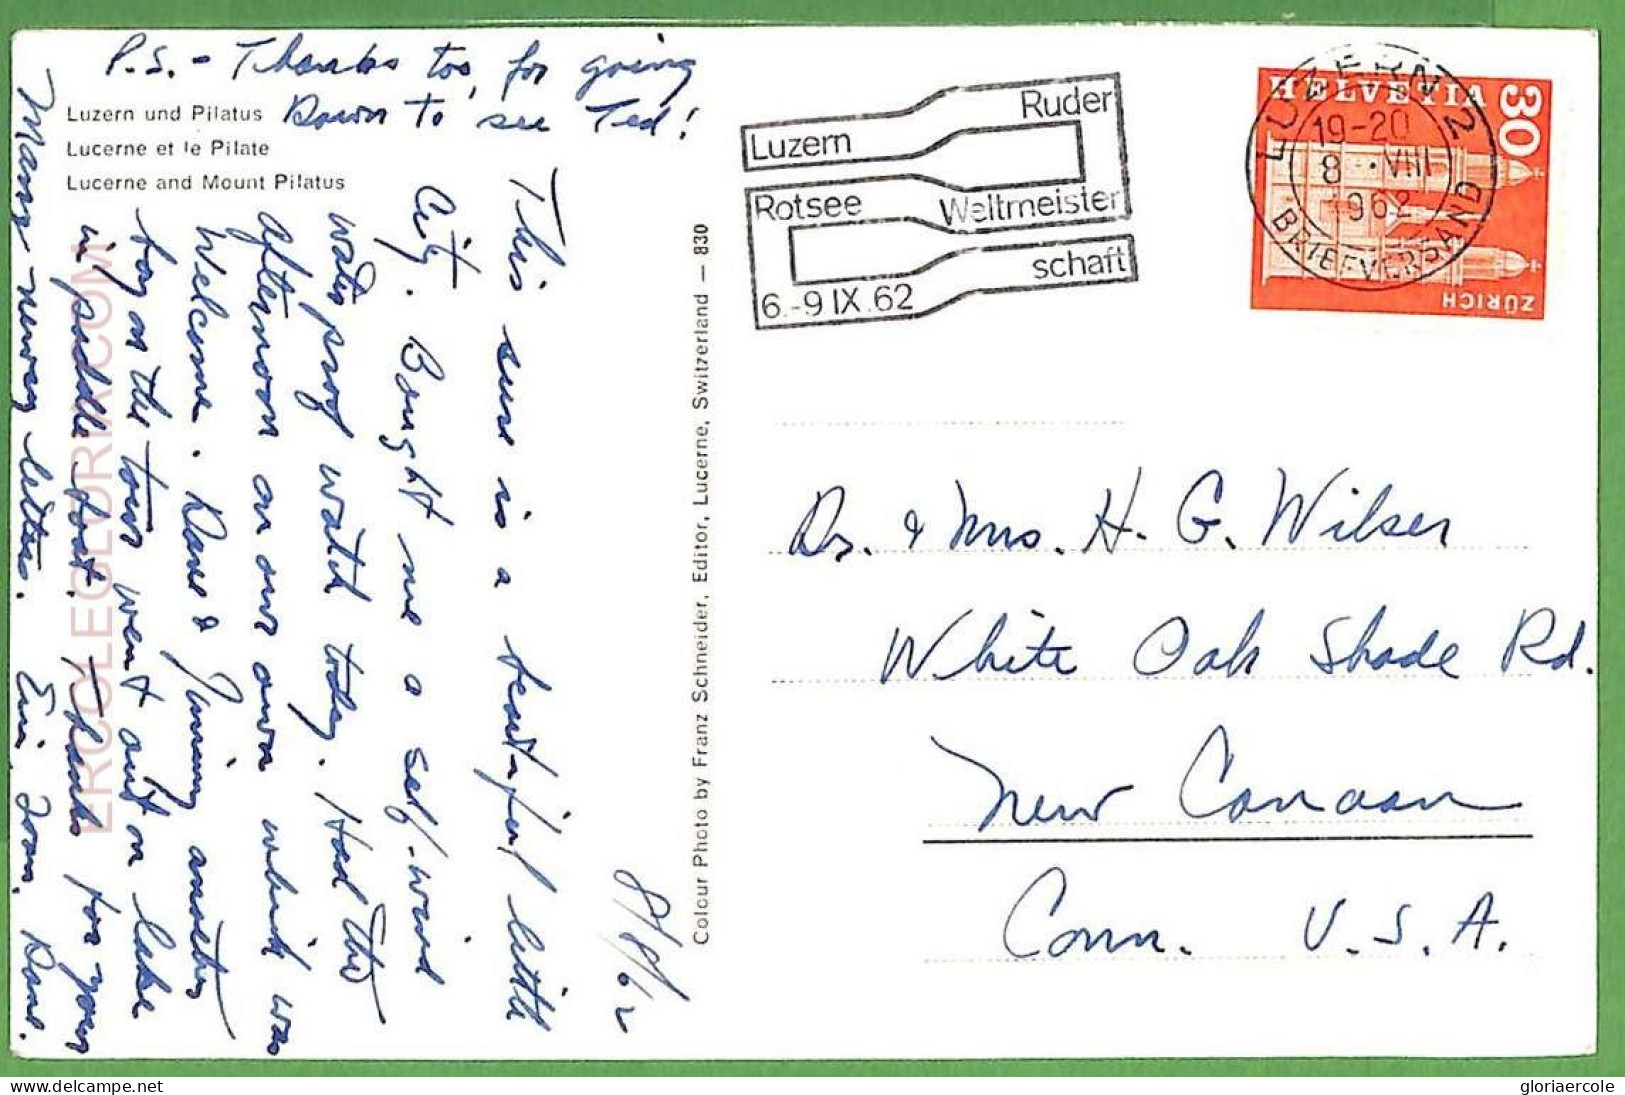 P.S. - Thanks too, for going
down to see Ted!
Luzern und Pilatus
Lucerne et le Pilate
Lucerne and Mount Pilatus
8/8/62
This sure is a beautiful little
City. Bought me a self-wind
waterproof watch today. Had this
afternoon on our own which was
Welcome. Dave & Jimmy another
boy on the tour went out on lake
in paddle boat. Thanks for your
many newsy letters.
Colour Photo by Franz Schneider, Editor, Lucerne, Switzerland — 830
Luzern
Ruder
Rotsee
Weltmeister
schaft
6.-9 IX.62
LUZERN 2
19-20
8 VIII
1962
BRIEFVERSAND
HELVETIA
30
ZÜRICH
Dr. & Mrs. H. G. Wilser
White Oak Shade Rd.
New Canaan
Conn. U.S.A.
ERCOLEGLORIA.COM
gloriaercole